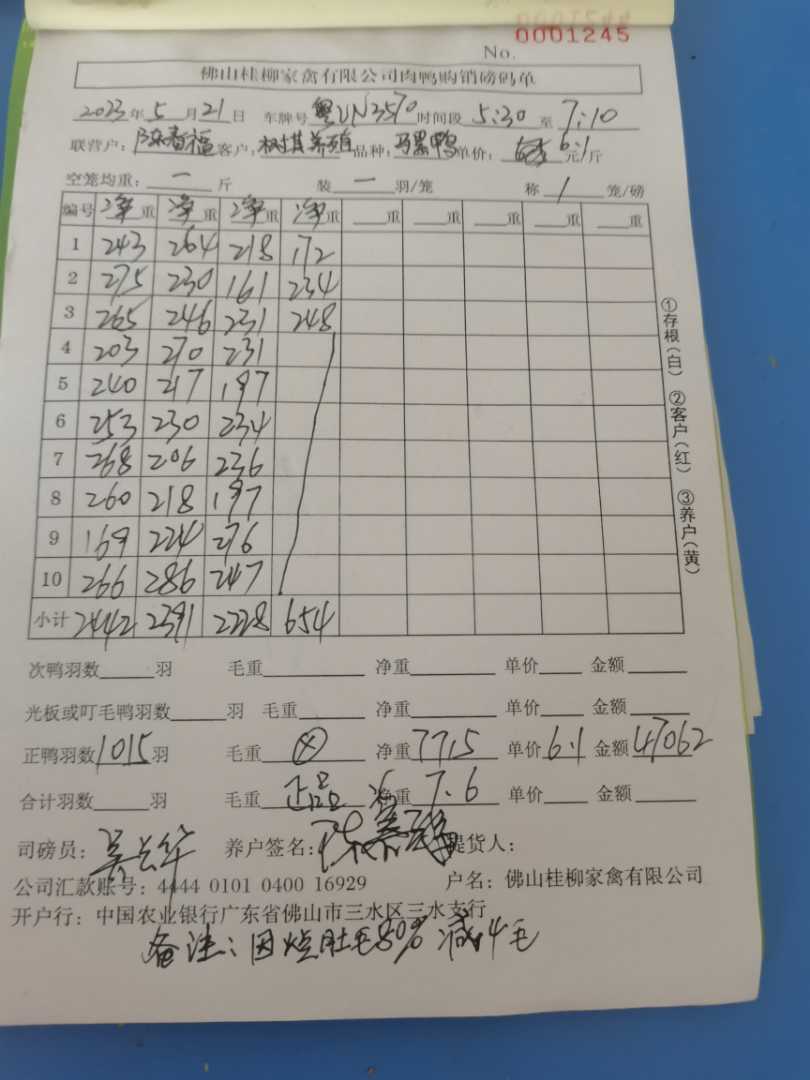 0001245
No.
佛山桂柳家禽有限公司肉鸭购销磅码单
2023年5月21日 车牌号粤UN3570时间段5:30至7:10
联营户:客户:树其养殖品种:马黑鸭单价:6.1元/斤
空笼均重:一斤 装一羽/笼 称/笼/磅
编号 净重 净重 净重 净重 重 重 重 重
1 243 264 218 172
2 275 230 161 234
3 265 246 231 248
4 203 270 231
5 240 217 197
6 253 230 234
7 268 206 236
8 260 218 197
9 169 224 276
10 266 286 247
小计 2442 2391 2228 654
①存根(白) ②客户(红) ③养户(黄)
次鸭羽数 羽 毛重 净重 单价 金额
光板或叮毛鸭羽数 羽 毛重 净重 单价 金额
正鸭羽数1015羽 毛重 净重7715 单价6.1 金额47062
合计羽数 羽 毛重正品 净重7.6 单价 金额
司磅员: 养户签名: 提货人:
公司汇款账号:4444 0101 0400 16929 户名:佛山桂柳家禽有限公司
开户行:中国农业银行广东省佛山市三水区三水支行
备注:因 肚毛80% 减4毛